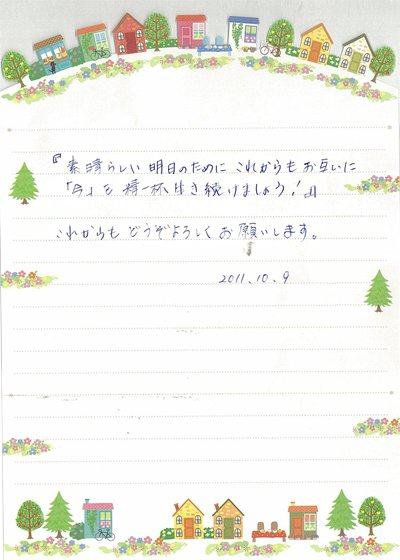 『素晴らしい明日のために これからもお互いに
「今」を精一杯生き続けましょう！』
これからも どうぞよろしく お願いします。
2011.10.9